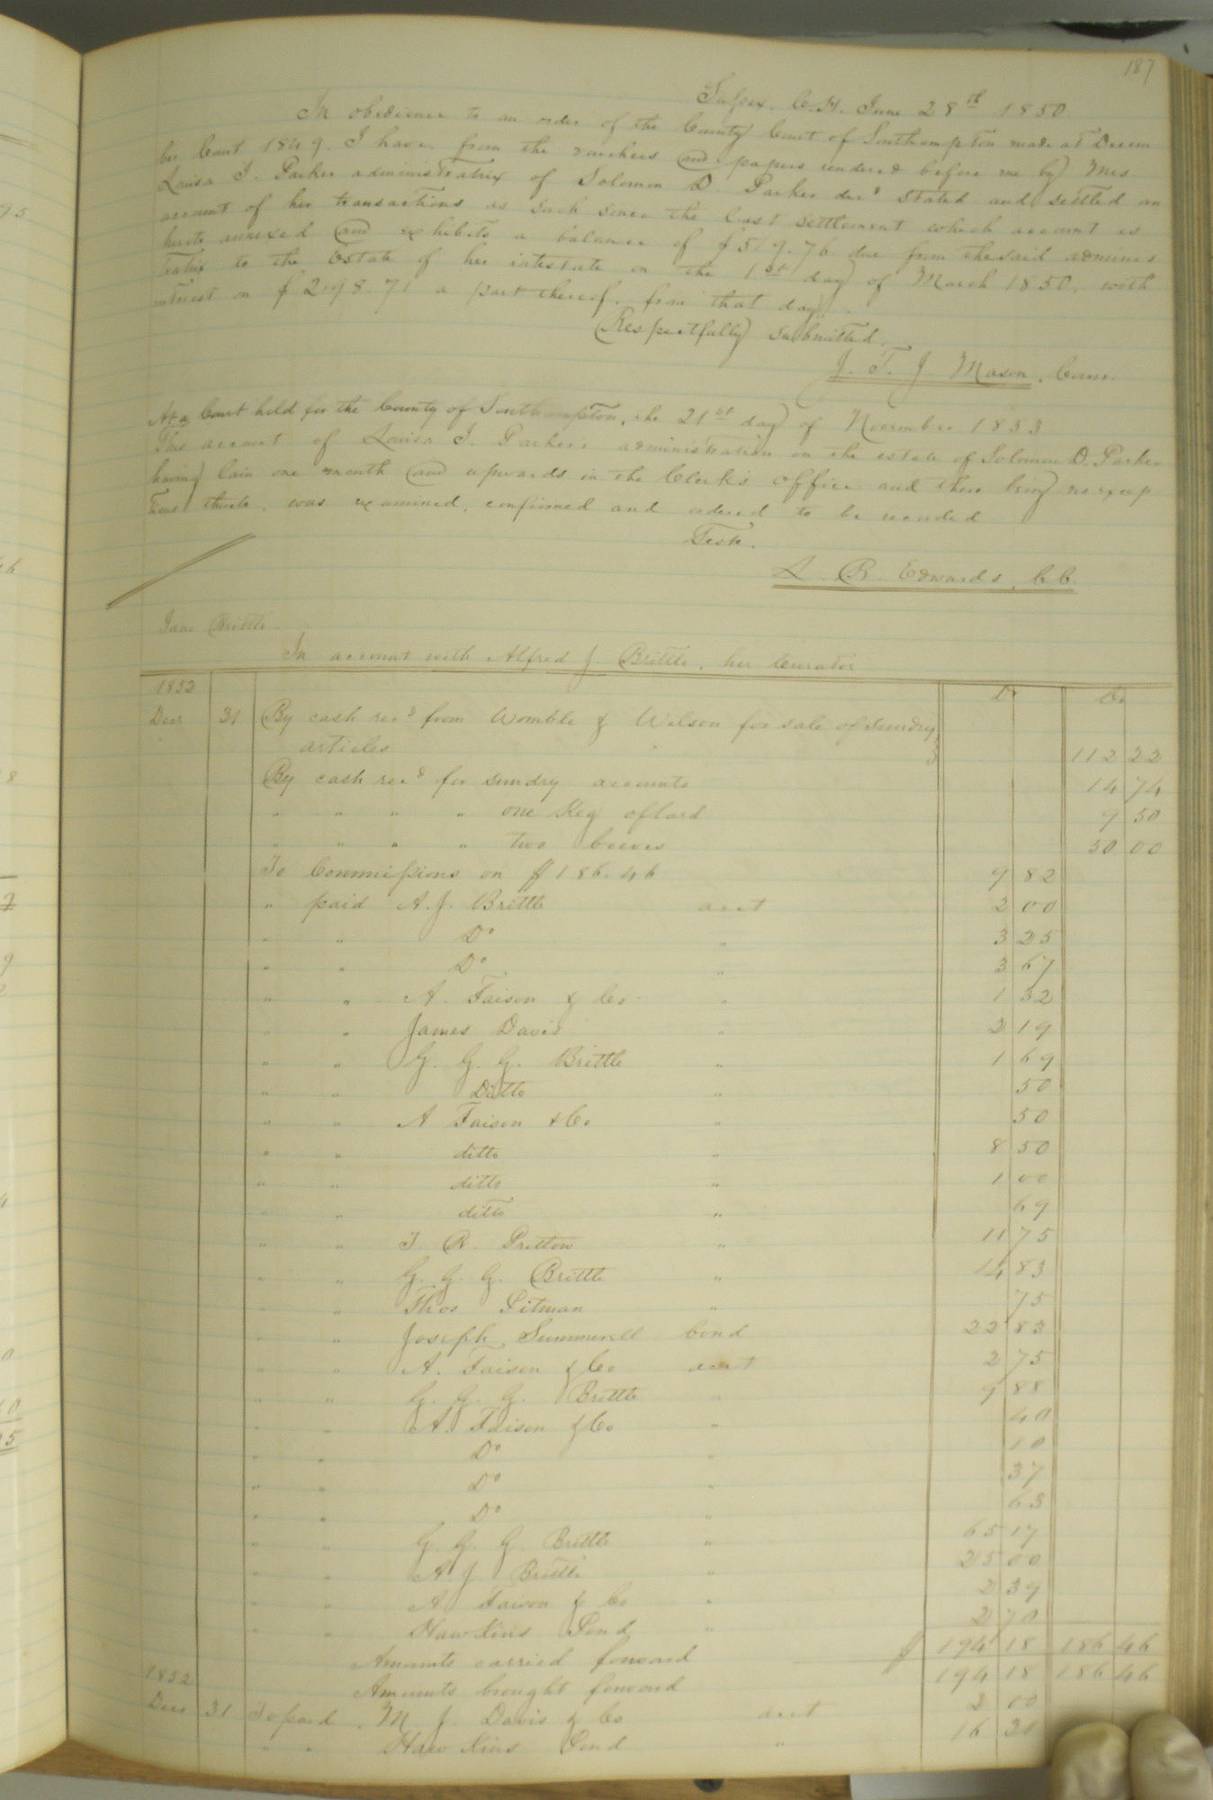 187
Sussex. C. H. June 28th 1850
In obedience to an order of the County Court of Southampton made at Decem
ber Court 1849. I have from the vouchers and papers rendered before me by Mrs
Louisa J. Parker administratrix of Solomon D. Parker decd stated and settled an
account of her transactions as such since the last settlement which account is
hereto annexed and exhibits a balance of $519.76 due from the said adminis
tratrix to the Estate of her intestate on the 1st day of March 1850, with
interest on $298.71 a part thereof, from that day.
Respectfully submitted.
J. T. J. Mason, Com.
At a Court held for the County of Southampton, the 21st day of November 1853
This account of Louisa J. Parker's administration on the estate of Solomon D. Parker
having lain one month and upwards in the Clerk's office and there being no excep
tions thereto, was examined, confirmed and ordered to be recorded
Teste.
L. R. Edwards, C. C.
Jane Brittle
In account with Alfred J. Brittle, her Curator
1852 Dr Cr
Decr 31 By cash recd from Womble & Wilson for sale of sundry
articles 112 22
By cash recd for sundry accounts 14 74
" " " " one Keg of lard 9 50
" " " " two beeves 50 00
To Commissions on $186.46 9 82
" paid A. J. Brittle acct 2 00
" " Do " 3 25
" " Do " 3 67
" " A. Faison & Co " 1 52
" " James Davis " 2 19
" " G. G. G. Brittle " 1 69
" " Ditto " 50
" " A Faison & Co " 50
" " ditto " 8 50
" " ditto " 1 00
" " ditto " 69
" " J. R. Pretlow " 11 75
" " G. G. G. Brittle " 14 83
" " Thos Pitman " 75
" " Joseph Summerell bond 22 83
" " A. Faison & Co acct 2 75
" " G. G. G. Brittle " 9 88
" " A. Faison & Co " 40
" " Do " 10
" " Do " 37
" " Do " 63
" " G. G. G. Brittle " 65 17
" " A J Brittle " 25 00
" " A Faison & Co " 2 39
" " Hawkins Pond " 2 70
Amounts carried forward $ 194 18 186 46
1852 Amounts brought forward 194 18 186 46
Decr 31 To paid M J. Davis & Co acct 2 00
" " Hawkins Pond " 16 31